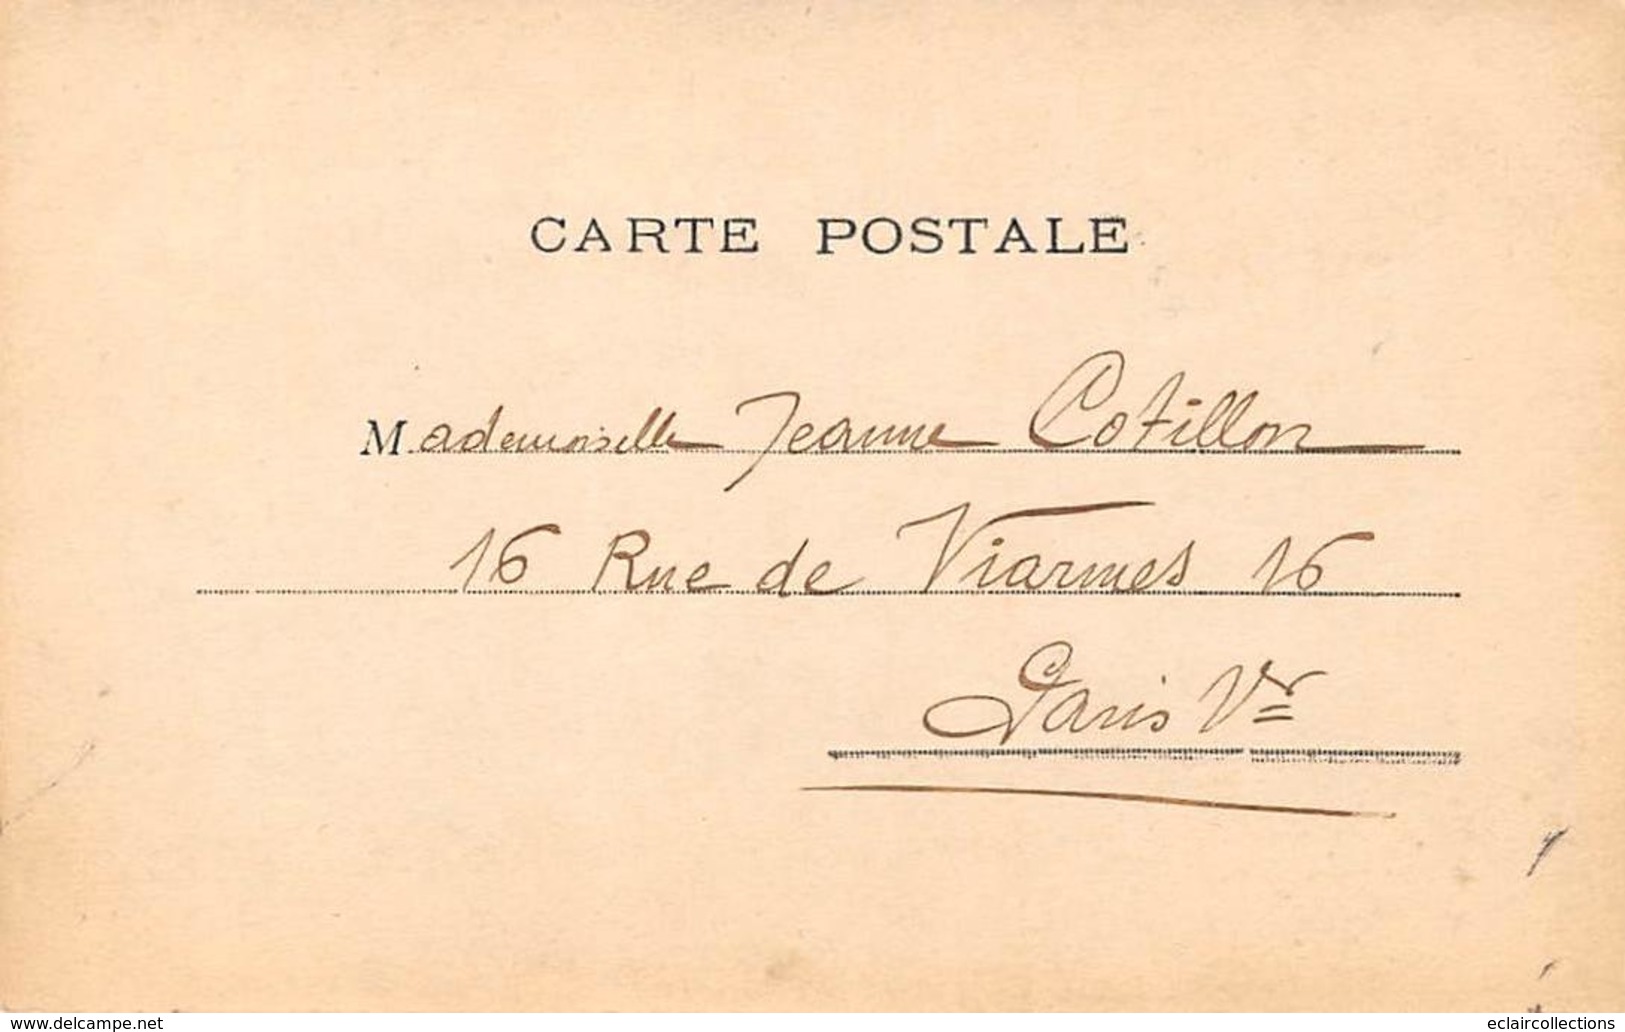 CARTE POSTALE
Mademoiselle Jeanne Cotillon
16 Rue de Viarmes 16
Paris Ier
www.delcampe.net
eclaircollections